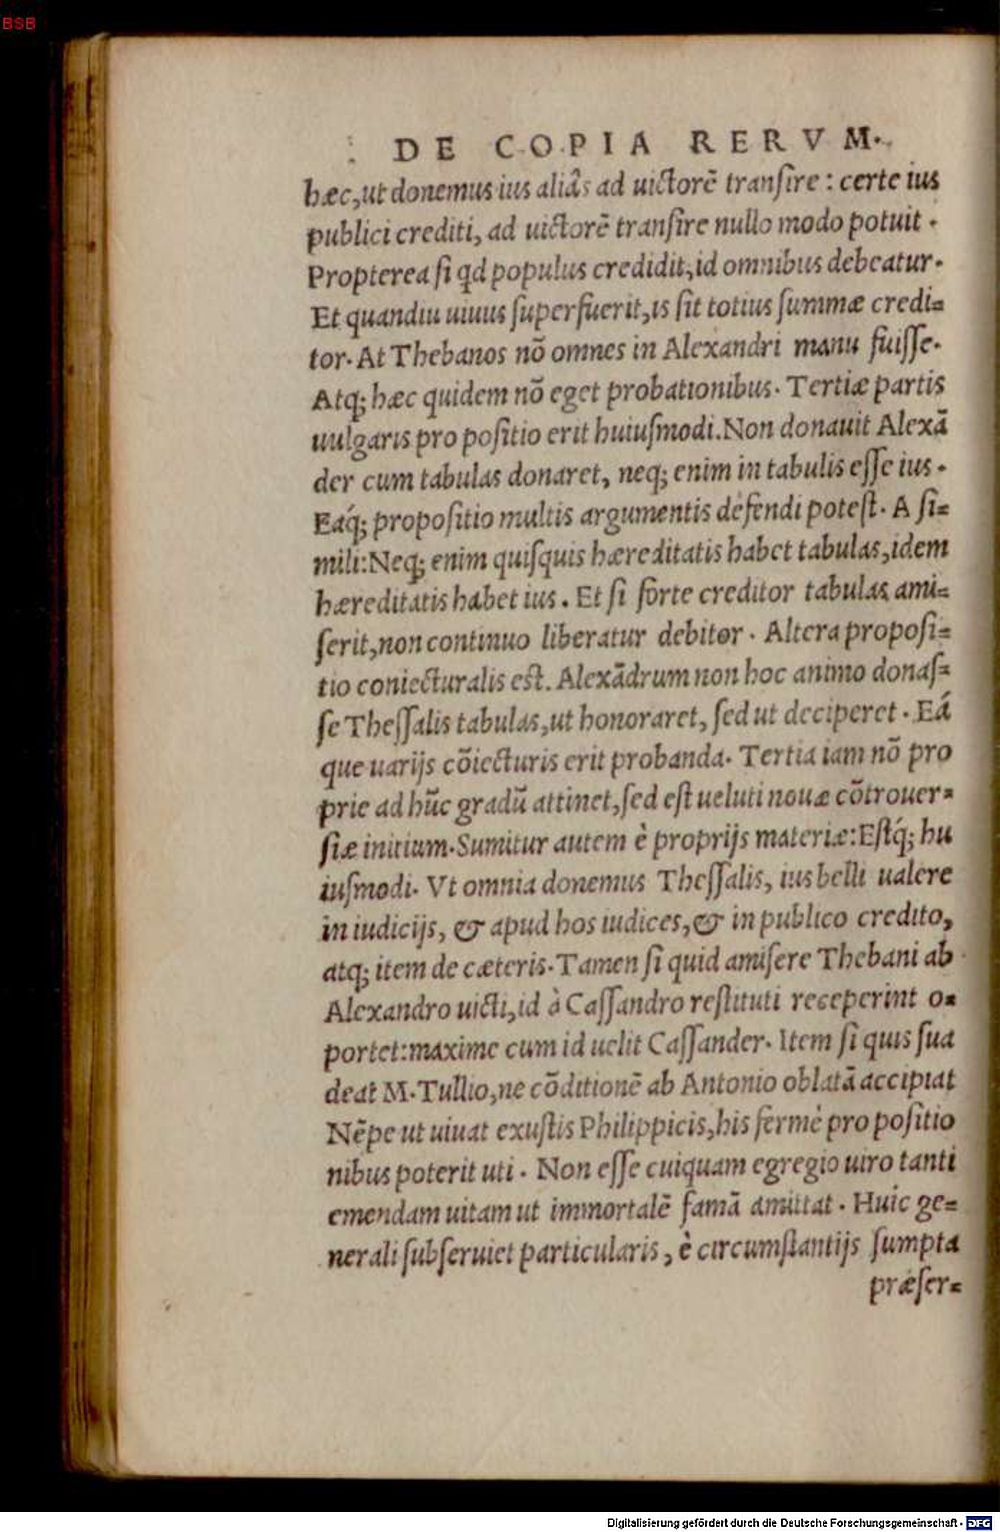 BSB
DE COPIA RERVM.
hæc,ut donemus ius aliâs ad uictorē transire : certe ius
publici crediti, ad uictorē transire nullo modo potuit.
Propterea si qd populus credidit,id omnibus debeatur.
Et quandiu uiuus superfuerit,is sit totius summæ credi=
tor. At Thebanos nō omnes in Alexandri manu fuisse.
Atq; hæc quidem nō eget probationibus. Tertiæ partis
uulgaris pro positio erit huiusmodi.Non donauit Alexā
der cum tabulas donaret, neq; enim in tabulis esse ius.
Eáq; propositio multis argumentis defendi potest. A si=
mili:Neq; enim quisquis hæreditatis habet tabulas,idem
hæreditatis habet ius. Et si forte creditor tabulas ami=
serit,non continuo liberatur debitor. Altera proposi=
tio coniecturalis est. Alexādrum non hoc animo donas=
se Thessalis tabulas,ut honoraret, sed ut deciperet. Eá
que uarijs cōiecturis erit probanda. Tertia iam nō pro
prie ad hūc gradū attinet,sed est ueluti nouæ cōtrouer=
siæ initium.Sumitur autem è proprijs materiæ:Estq́; hu
iusmodi. Vt omnia donemus Thessalis, ius belli ualere
in iudicijs, & apud hos iudices,& in publico credito,
atq; item de cæteris.Tamen si quid amisere Thebani ab
Alexandro uicti,id à Cassandro restituti receperint o=
portet:maxime cum id uelit Cassander. Item si quis sua
deat M.Tullio,ne cōditionē ab Antonio oblatā accipiat
Nēpe ut uiuat exustis Philippicis,his fermè pro positio
nibus poterit uti. Non esse cuiquam egregio uiro tanti
emendam uitam ut immortalē famā amittat. Huic ge=
nerali subseruiet particularis, è circumstantijs sumpta
præser=
Digitalisierung gefördert durch die Deutsche Forschungsgemeinschaft - DFG